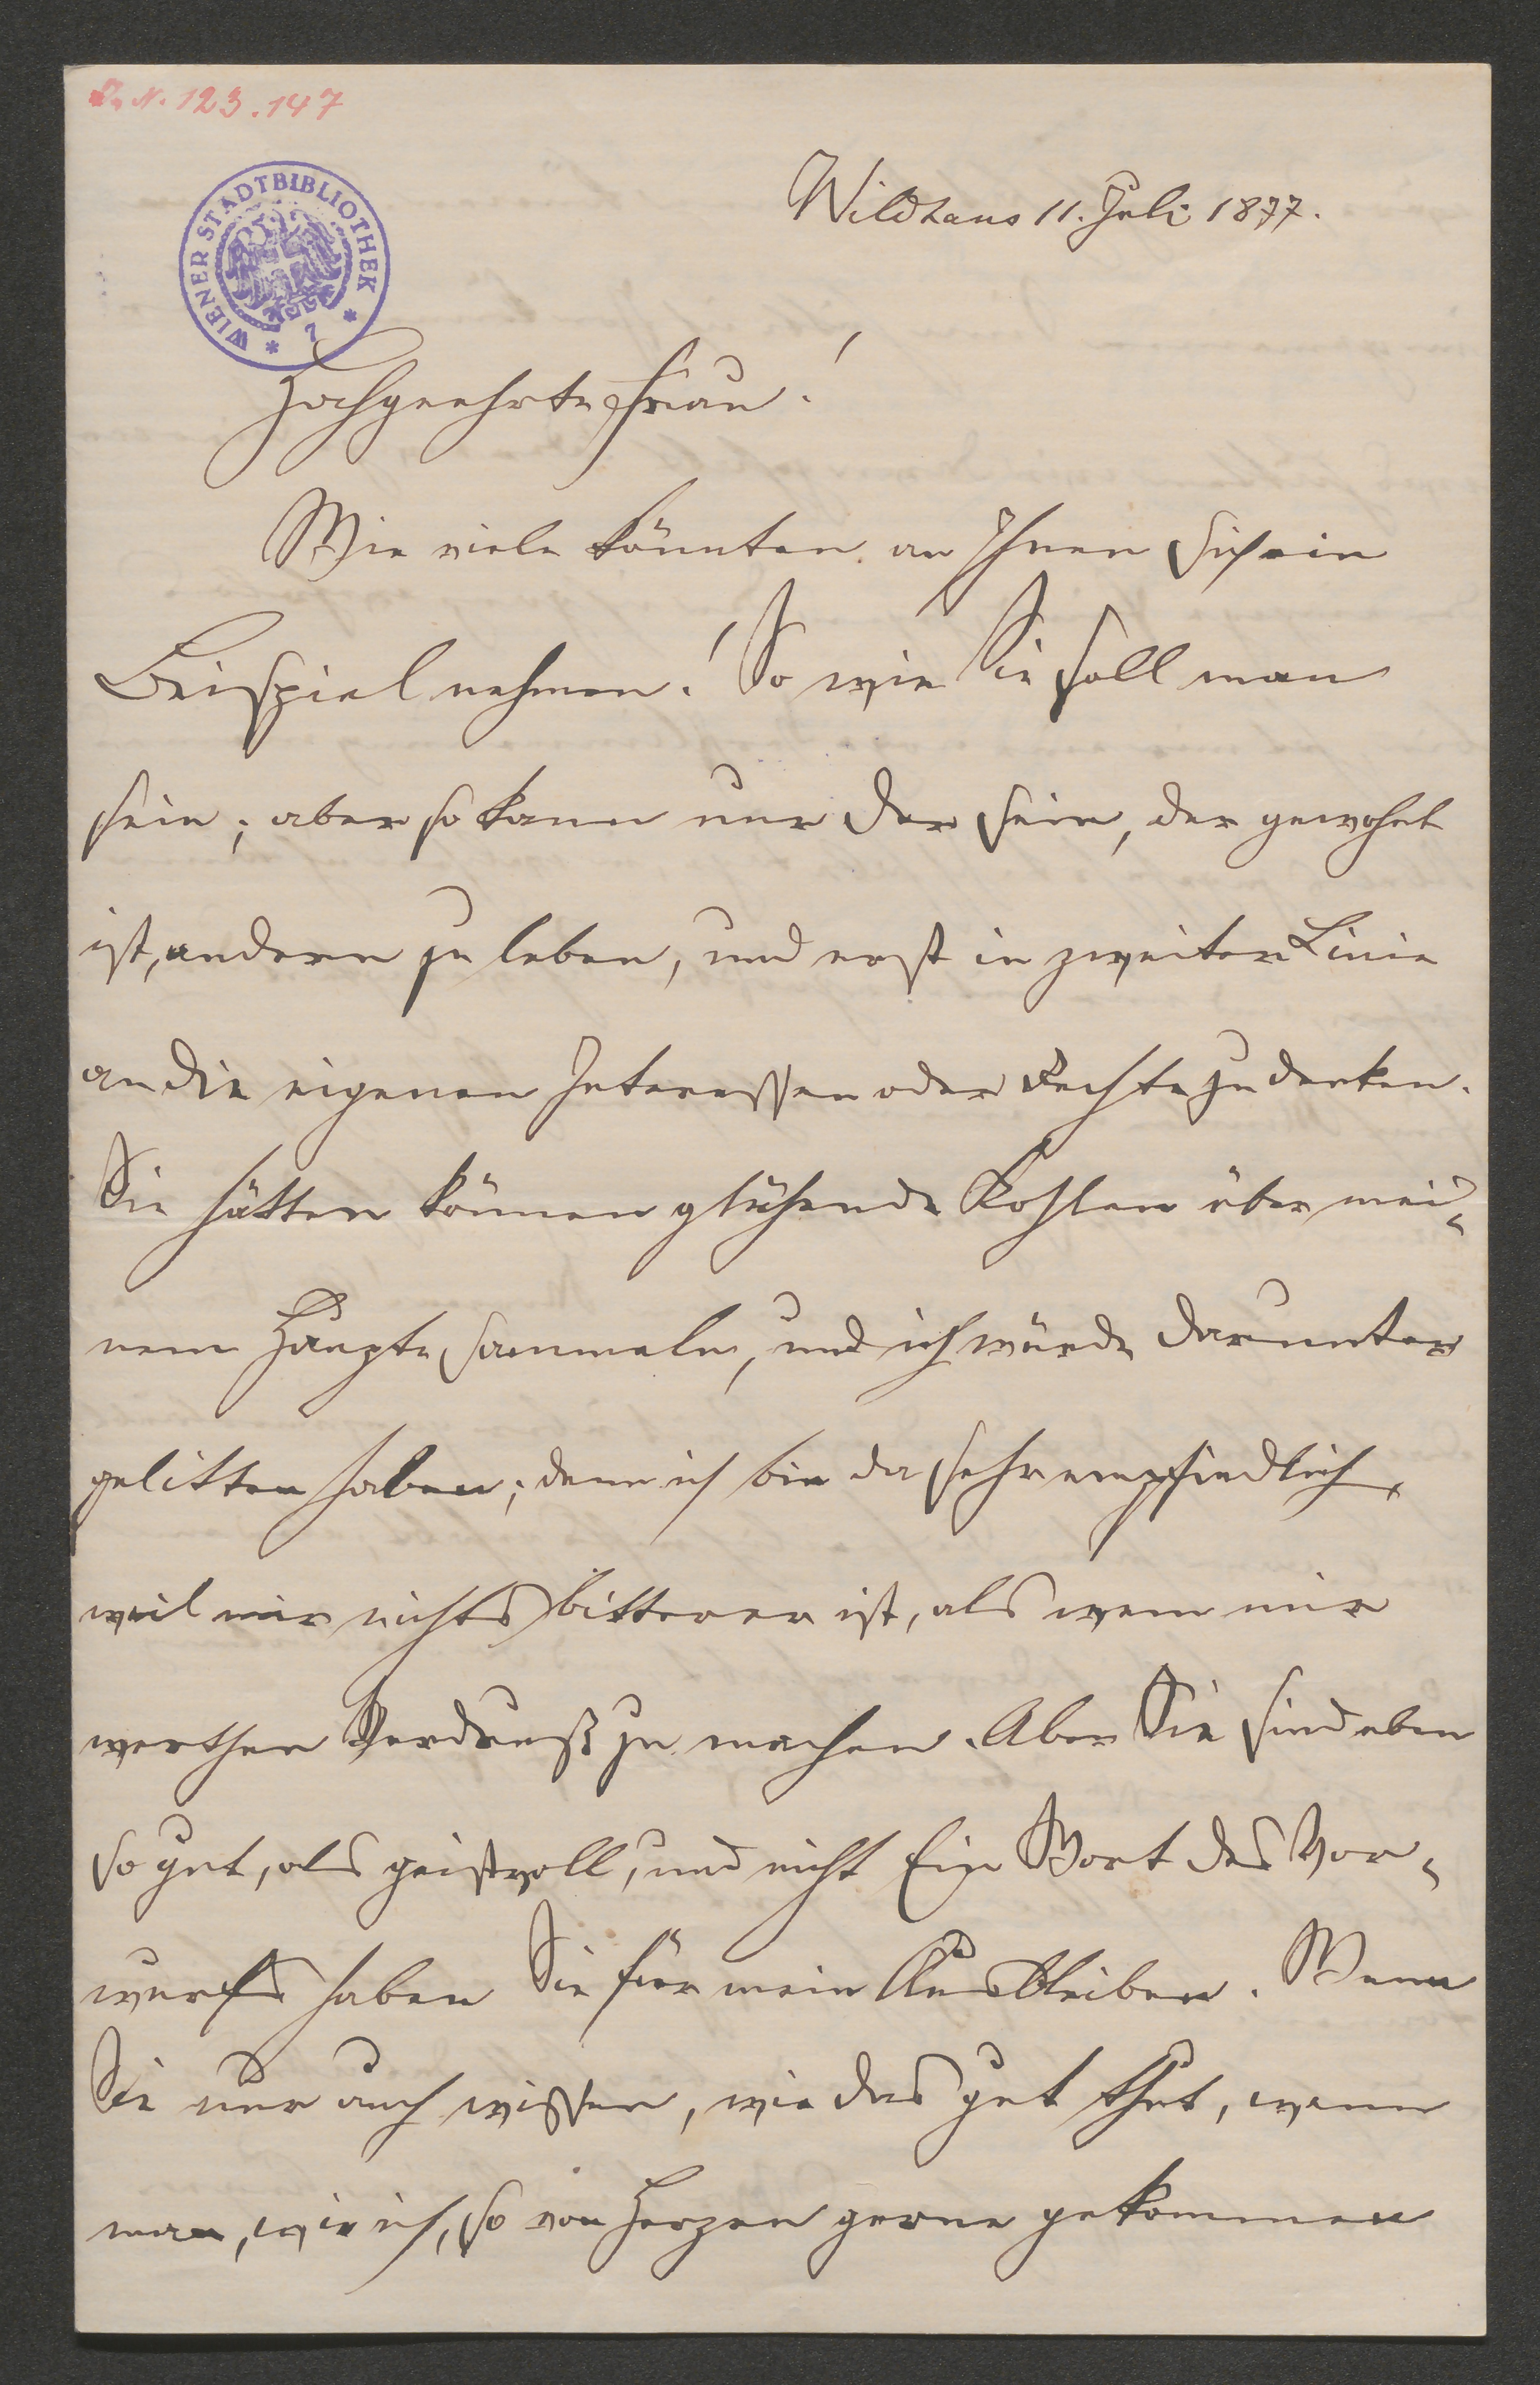 I. N. 123.147
WIENER STADTBIBLIOTHEK
Wildhaus 11. Juli 1877.
Hochgeehrte Frau!
Wie viele könnten an Ihnen sich ein
Beispiel nehmen! So wie Sie soll man
sein; aber so kann nur der sein, der gewohnt
ist, andern zu leben, und erst in zweiter Linie
an die eigenen Interessen oder Rechte zu denken.
Sie hätten können glühende Kohlen über mei-
nem Haupte sammeln, und ich würde darunter
gelitten haben; denn ich bin da sehr empfindlich,
weil mir nichts bitterer ist, als wem mir
werthen Verdruß zu machen. Aber Sie sind eben
so gut, als geistvoll, und nicht Ein Wort des Vor-
wurfs haben Sie für mein Ausbleiben. Wenn
Sie nur auch wissen, wie das gut thut, wenn
man, wie ich, so von Herzen gerne gekommen